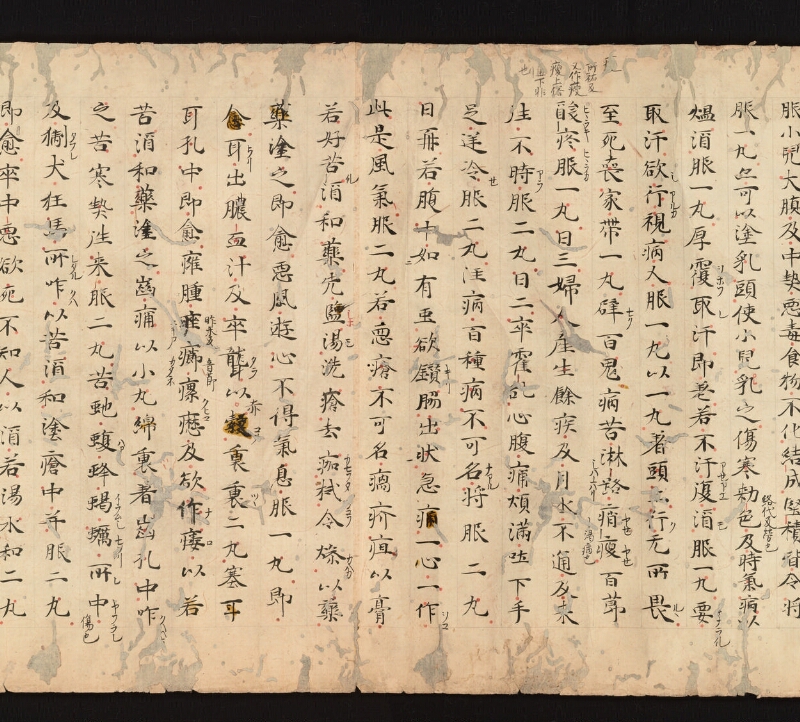 脹小兒大腹及中熱惡毒食物不化結成堅積皆令將
服一丸亦可以塗乳頭使小兒乳之傷寒勑色及時氣病以
熅酒服一丸厚覆取汗即差若不汗復酒服一丸要
取汗欲行視病人服一丸以一丸著頭上行无所畏
至死喪家帶一丸辟百鬼病苦淋路痟瘦百莭
酸疼服一丸日三婦人產生餘疾及月水不通及來
往不時服二丸日二卒霍乱心腹痛煩滿吐下手
足逆冷服二丸注病百種病不可名將服二丸
日再若腹中如有虫欲鑽脇出狀急痛一心一作
此是風氣服二丸若惡瘡不可名瘑疥疽以膏
若好苦酒和藥先鹽湯洗瘡去痂拭令燥以藥
藥塗之即愈惡風逆心不得氣息服一丸即
愈耳出膿血汁及卒聾耳以赤縠裹二丸塞耳
耳孔中即愈癰腫痤癤瘰癧及欲作瘻以若
苦酒和藥塗之齒痛以小丸綿裹著齒孔中咋
之苦寒熱往来服二丸苦虵蝮蜂蝎蠣所中
及猘犬狂馬所咋以苦酒和塗瘡中并服二丸
即愈卒中惡欲死不知人以酒若湯水和二丸